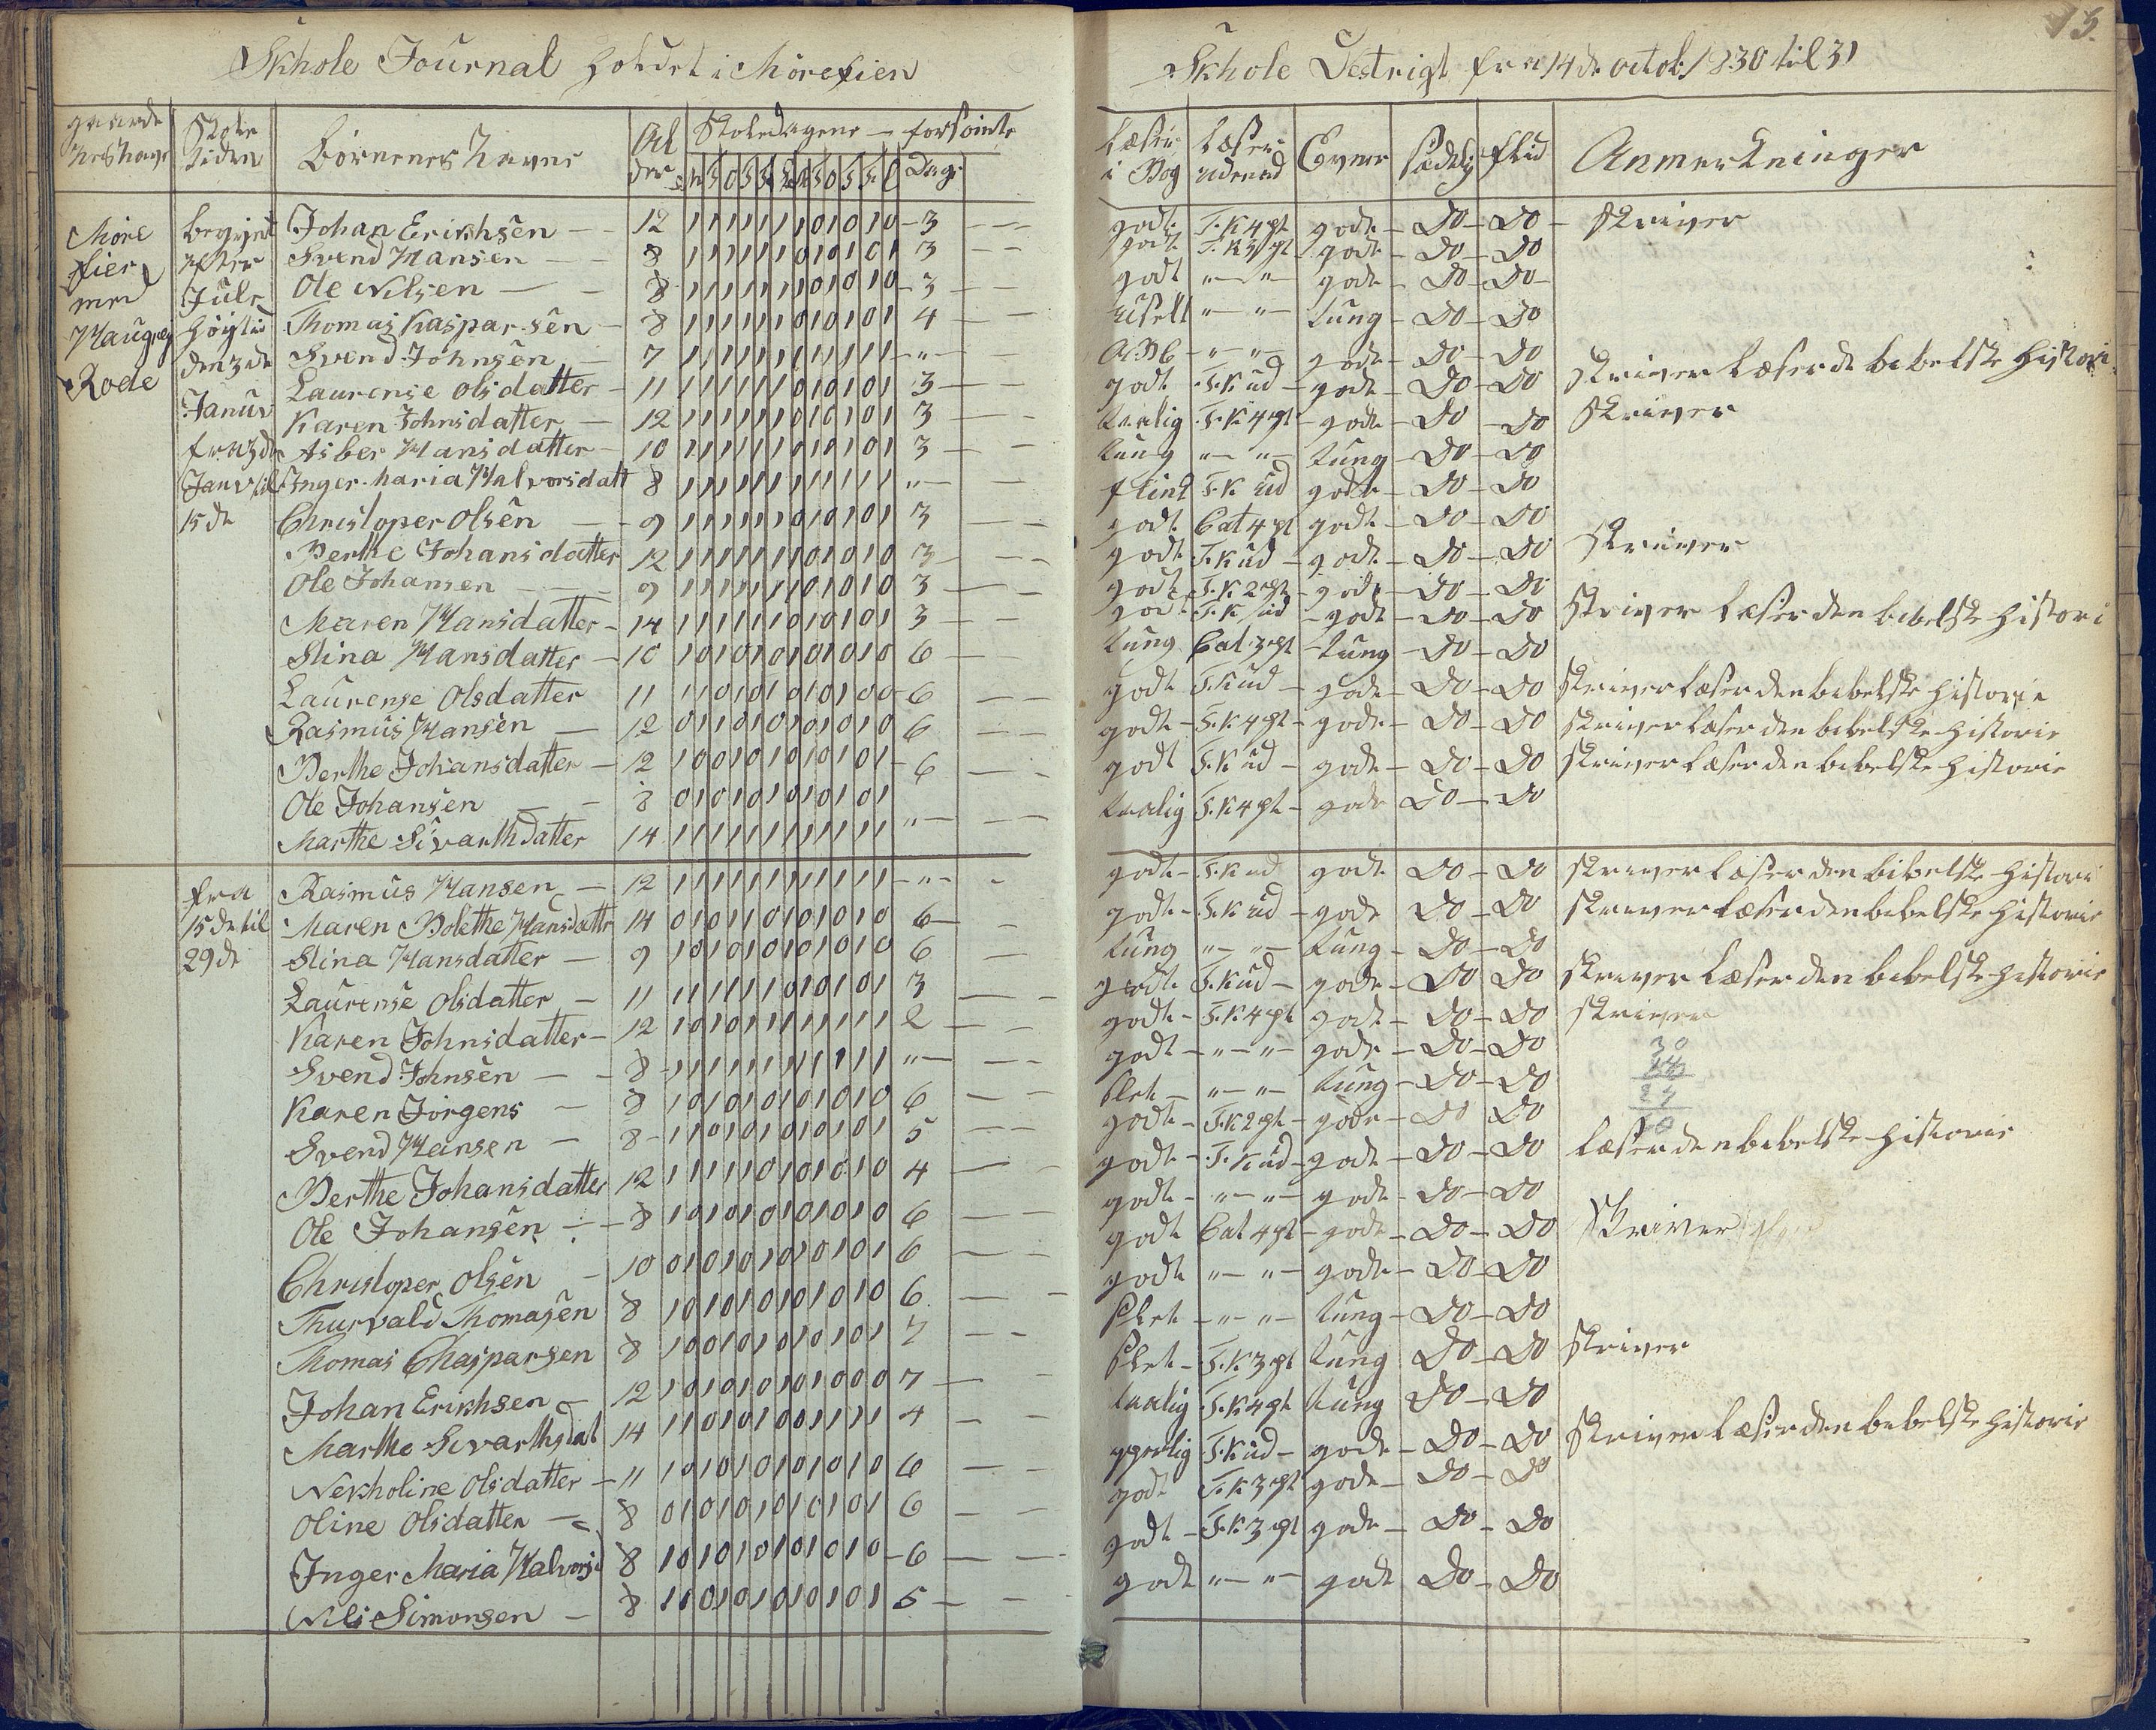 15.
Skhole Journal holdet i Mörefier Skhole Destrigt fra 14 de octob 1830 til 31
gaarde nes havn | Skole tiden | Börnenes Navne | Al der | Skoledagene — forsömte Dage | Læser i Bog | Læser udenad | Evner | sædelig | flid | Anmerkninger
Möre fier med Haugrej Rode
begynt efter Jule höigtid den 3 de Januv fra 3 de Janv til 15 de
Johan Erikhsen — 12 1 1 1 1 1 1 1 0 1 0 1 0 — 3 — godt F.K 4 pt gode — Do — Do — skriver
Svend Hansen — 8 1 1 1 1 1 1 0 1 0 1 0 1 3 — godt F.K 4 pt gode — Do — Do
Ole Nilsen — 8 1 1 1 1 1 1 1 0 1 0 1 0 — 3 — godt " — " gode — Do — Do
Thomas Kasparsen — 8 1 1 1 1 1 1 0 1 0 1 0 1 4 — " — " tung — Do — Do
Svend Johnsen — 7 1 1 1 1 1 1 1 1 1 1 1 1 — " — ABC — " — " gode — Do — Do
Laurense olsdatter — 11 1 1 1 1 1 1 0 1 0 1 0 1 3 — godt F.K ud — gode — Do — Do skriver læser de bibelske histori
Karen Johnsdatter — 12 1 1 1 1 1 1 0 1 0 1 0 1 3 — taalig F.K 4 pt — gode — Do — Do skriver
Asber Hansdatter — 10 1 1 1 1 1 1 0 1 0 1 0 1 3 — tung " — " — tung — Do — Do
Inger maria Halvorsdatt 8 1 1 1 1 1 1 1 1 1 1 1 1 " — flink F.K ud gode — Do — Do
Christoper Olsen — 9 1 1 1 1 1 1 0 1 0 1 0 1 3 — godt Cat 4 pt gode — Do — Do
Berthe Johansdatter 12 1 1 1 1 1 1 1 0 1 0 1 0 3 — godt F.K ud — gode — Do — Do skriver
Ole Johansen — 9 1 1 1 1 1 1 1 0 1 0 1 0 3 — godt F.K 2 pt — gode — Do — Do
Maren Hansdatter — 14 1 1 1 1 1 1 0 1 0 1 0 1 3 — god F.K ud — gode — Do — Do skriver læser den bibelske histori
Stina Hansdatter — 10 1 0 1 0 1 0 1 0 1 0 1 0 6 — tung Cat 3 pt — tung — Do — Do
Laurense Olsdatter 11 1 1 0 1 0 1 0 1 0 1 0 0 — 6 — godt F.K ud — gode — Do — Do skriver læser den bibelske historie
Rasmus Hansen — 12 0 1 1 0 1 0 1 0 1 0 1 0 6 — godt — F.K 4 pt — gode — Do — Do skriver læser den bibelske historie
Berthe Johansdatter — 12 1 0 0 1 0 1 0 1 0 1 0 1 — 6 — godt F.K ud — gode — Do — Do skriver læser den bibelske historie
Ole Johansen — 8 0 1 0 1 0 1 0 1 0 1 0 1 taalig F.K 4 pt — gode Do — Do
Marthe Sivarthdatter 14 1 1 1 1 1 1 1 1 1 1 1 1 " —
fra 15 de til 29 de
Rasmus Hansen — 12 1 1 1 1 1 1 1 1 1 1 1 1 — " — godt — F.K ud gode Do — Do skriver læser den bibelske histori
Maren Bolethe Hansdatte 14 0 1 0 1 1 0 1 0 1 0 1 0 6 — godt — F.K ud — gode Do — Do skriver læser den bibelske historie
Stina Hansdatter — 9 1 0 1 0 1 0 1 0 1 0 1 0 6 — tung " — " — tung — Do — Do
Laurense Olsdatter — 11 1 1 1 1 1 1 0 1 0 1 0 1 3 — godt F.K ud — gode — Do Do skriver læser den bibelske historie
Karen Johnsdatter — 12 1 0 1 0 1 1 1 1 1 1 1 1 2 — godt — F.K 4 pt gode — Do — Do skriver
Svend Johnsen — 8 1 1 1 1 1 1 1 1 1 1 1 1 " — godt — " — " — gode — Do — Do
Karen Jörgens — 8 1 0 1 0 1 0 1 0 1 0 1 0 6 — slet — " — " — tung — Do — Do
Svend Hansen — 8 — 1 1 0 1 0 1 0 1 0 1 0 1 5 — godt — F.K 2 pt — gode — Do Do
Berthe Johansdatter 12 1 1 1 1 1 0 1 0 1 0 1 0 4 — godt — F.K ud — gode — Do — Do læser den bibelske historie
Ole Johansen — 8 1 0 1 0 1 0 1 0 1 0 1 0 6 — godt — " — " — gode — Do — Do
Christoper Olsen — 10 0 1 0 1 0 1 0 1 0 1 0 1 6 — godt Cat 4 pt — gode — Do — Do skriver
Thurvald Thomasen 8 1 0 1 0 1 0 1 0 1 0 1 0 6 — godt " — " — gode — Do — Do
Thomas Chasparsen 8 1 0 0 1 0 1 0 1 0 1 0 1 7 — slet — " — " — tung — Do — Do
Johan Erikhsen — 12 1 0 1 0 1 0 1 0 1 0 0 0 7 — slet — F.K 3 pt tung Do — Do skriver
Marthe Sivarthsdat 14 1 1 0 1 0 1 0 0 1 1 1 1 4 — taalig F.K 4 pt tung Do — Do
Nekholine Olsdatter — 11 1 0 1 0 1 0 1 0 1 0 1 0 6 — yperlig F.K ud — gode — Do — Do skriver læser den bibelske historie
Oline Olsdatter — 8 0 1 0 1 0 1 0 1 0 1 0 1 6 — godt F.K 3 pt gode — Do — Do
Inger Maria Halvorsd 8 1 0 1 0 1 0 1 0 1 0 1 0 — 6 — godt — F.K 3 pt gode — Do — Do
Nils Simonsen — 8 1 1 0 1 0 1 0 1 0 1 0 1 5 — godt " — " — gode Do — Do
30